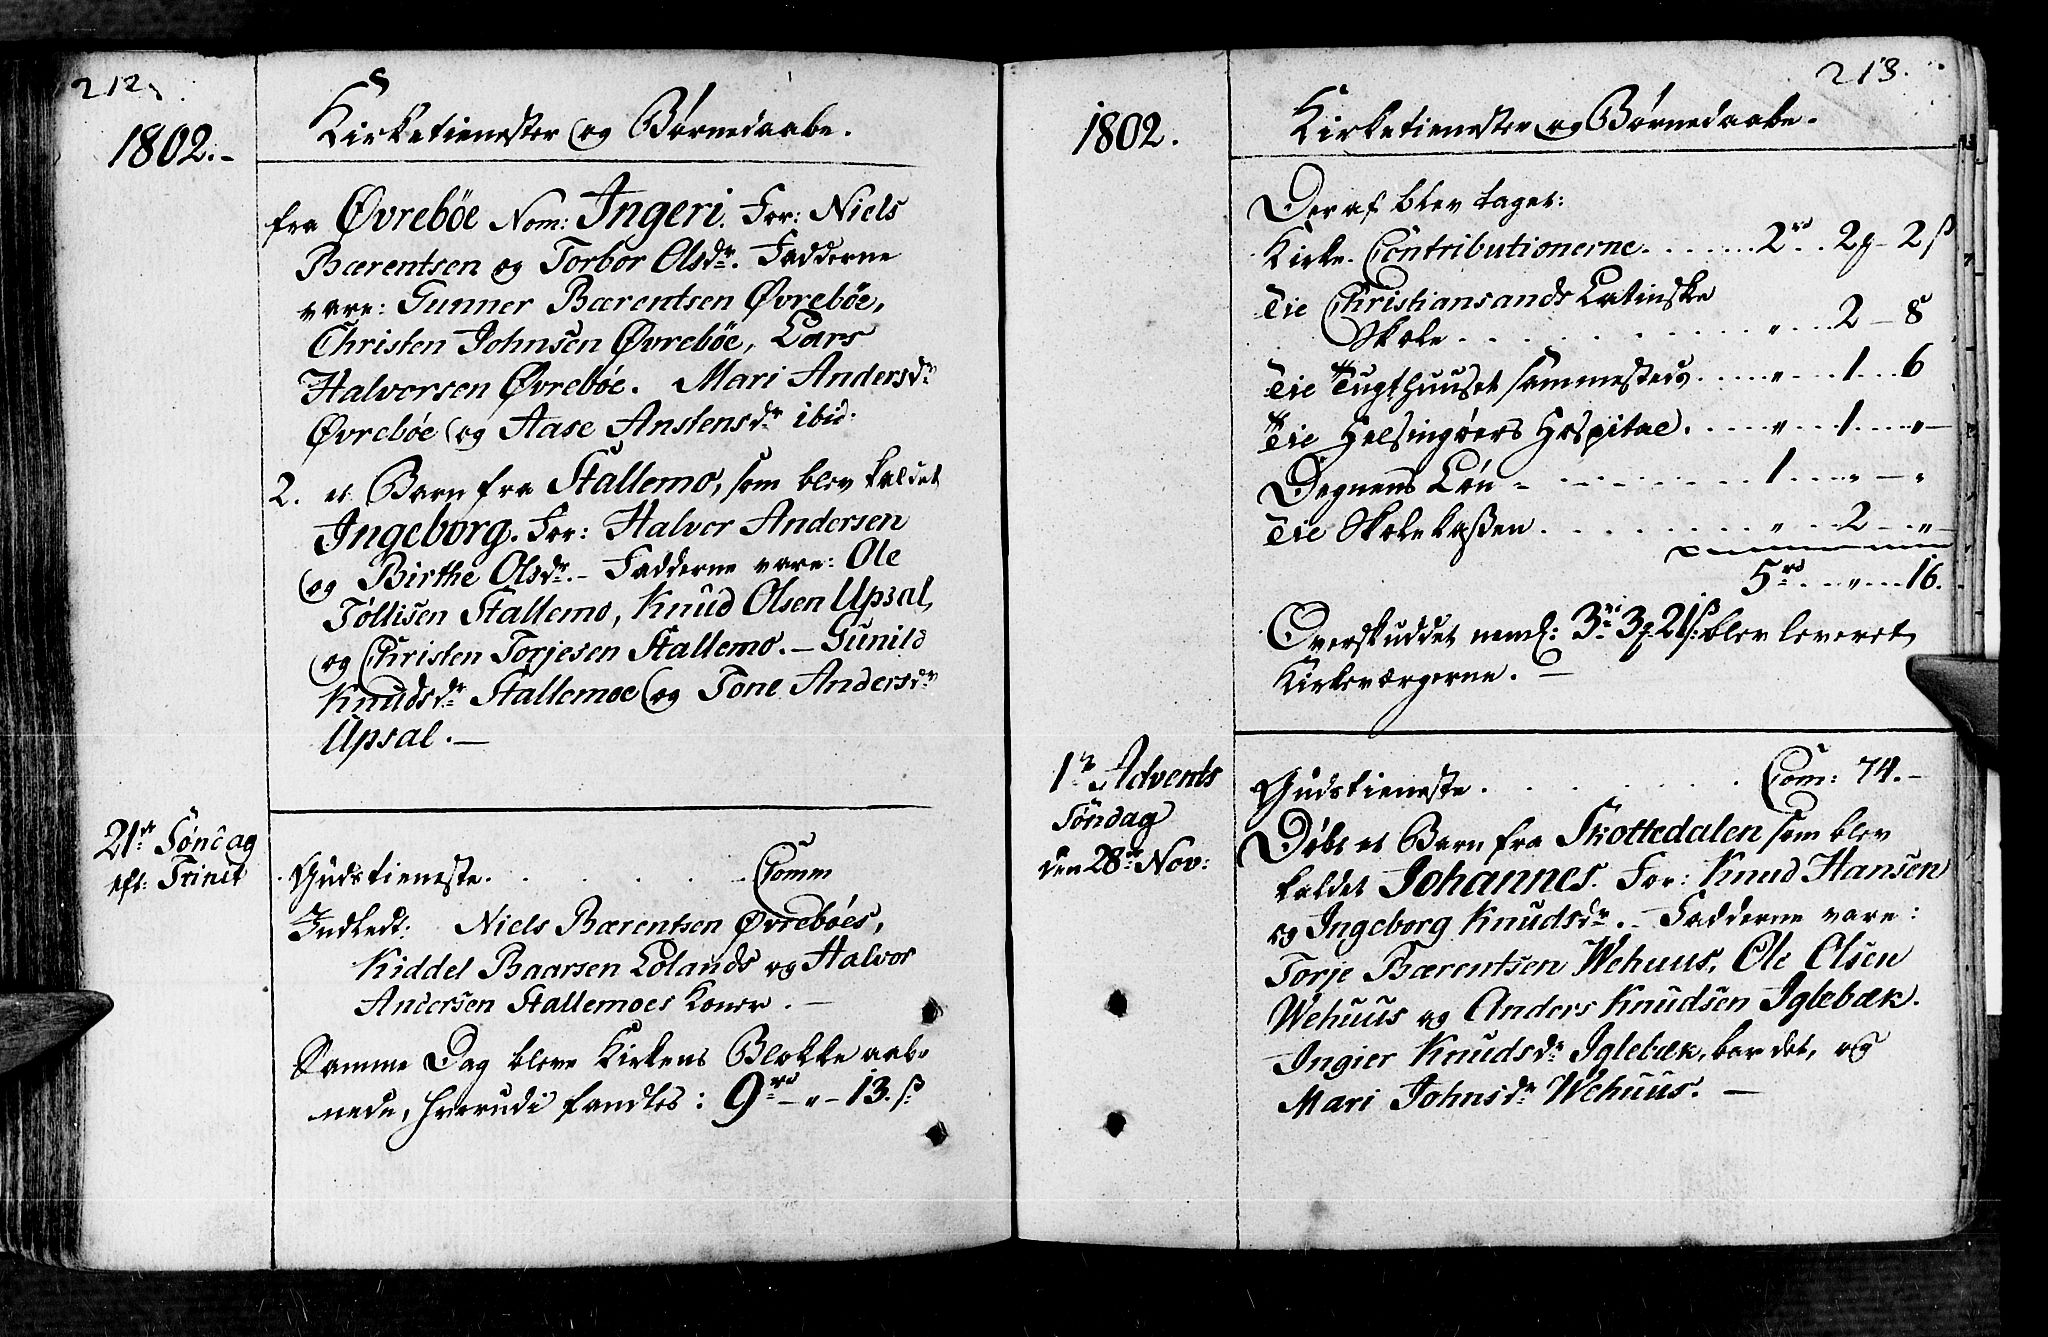 212.
1802.
Kirketienester og Børnedaabe.
fra Øvrebøe Nom: Ingeri. For: Niels
Bærentsen og Torbor Olsdr. Fadderne
vare: Gunner Bærentsen Øvrebøe,
Christen Johnsen Øvrebøe, Lars
Halvorsen Øvrebøe. Mari Andersdr
Øvrebøe og Aase Anstensdr ibid.
2. et Barn fra Stallemo, som blev kaldet
Ingeborg. For: Halvor Andersen
og Birthe Olsdr. – Fadderne vare: Ole
Tøllisen Stallemo, Knud Olsen Upsal,
og Christen Torjesen Stallemo. – Gunild
Knudsdr Stallemoe og Tone Andersdr
Upsal. –
21de Søndag
eft: Trinit
Gudstieneste. . . . . . Comm
Indledt: Niels Bærentsen Øvrebøes,
Kiddel Baarsen Lolands og Halvor
Andersen Stallemoes Koner. –
Samme Dag bleve Kirkens Blokke aab-
nede, hvorudi fandtes: 9rd – „ – 13 ß
213.
1802.
Kirketienester og Børnedaabe.
Deraf blev taget:
Kirke-Contributionerne . . . . . . 2rd . . 2 – 2 ß
Til Christiansands Latinske
Skole . . . . . . . . „ . . . 2 – 8
Til Tugthuuset sammesteds . . . . „ . . . 1 . . 6
Til Helsingøers Hospital . . . . „ . . . 1 . . . „ –
Degnens Løn – . . . . . . . . 1 . . . „ – „
Til Skolekaßen . . . . . . . „ . . . 2 – „ –
5rd . . . „ . . . 16.
Overskuddet neml: 3rd 3 21 ß: blev leveret
Kirkeværgerne. –
1ste Advents
Søndag
den 28de Nov:
Gudstieneste . . . . . . . Com: 74. –
Døbt et Barn fra Skottedalen som blev
kaldet Johannes. For: Knud Hansen
og Ingeborg Knudsdr. – Fadderne vare:
Torje Bærentsen Wehuus, Ole Olsen
Wehuus og Anders Knudsen Iglebæk.
Ingier Knudsdr Iglebæk, bar det, og
Mari Johnsdr Wehuus. –